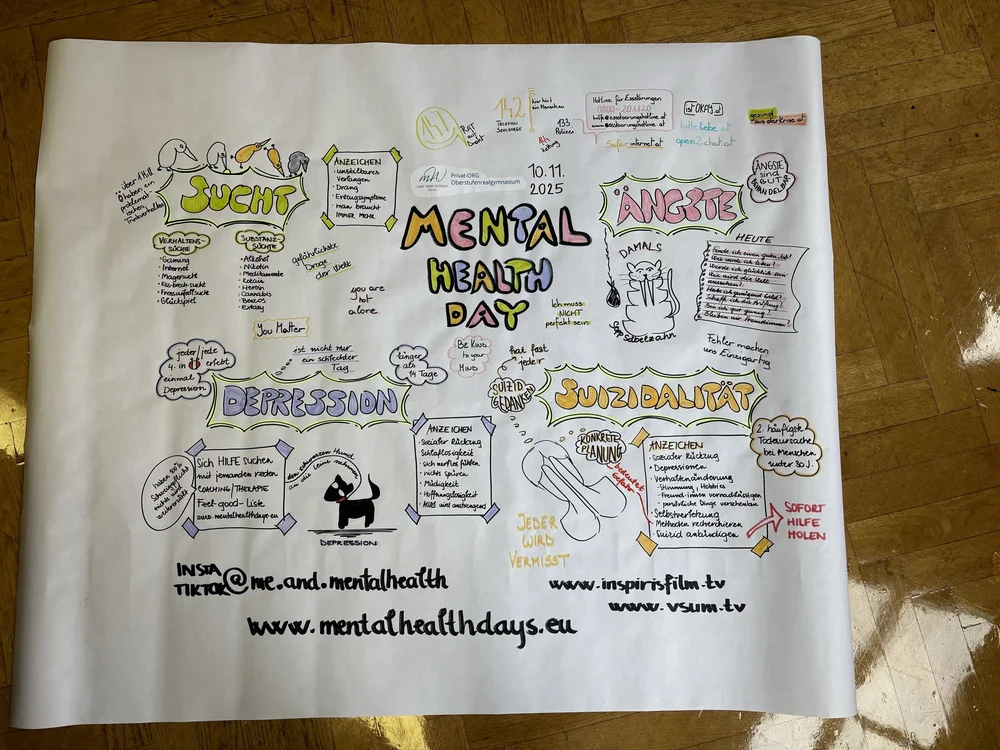 147
RAT
auf
Draht
142
TELEFON
SEELSORGE
133
Polizei
Rettung
Hotline für Essstörungen
0800-201120
hilfe@essstoerungshotline.at
www.essstoerungshotline.at
Saferinternet.at
istOKAY.at
bittelebe.at
open2chat.at
gesund
aus der Krise.at
Privat-ORG
Oberstufenrealgymnasium
10.11.
2025
MENTAL
HEALTH
DAY
SUCHT
ANZEICHEN
· unstillbares
Verlangen
· Drang
· Entzugssymptome
· man braucht
IMMER MEHR
VERHALTENS-
SÜCHTE
· Gaming
· Internet
· Magersucht
· Ess-brech-sucht
· Fressanfallsucht
· Glückspiel
SUBSTANZ-
SÜCHTE
· Alkohol
· Nikotin
· Medikamente
· Heroin
· Cannabis
· Benzos
· Extasy
gefährlichste
Droge
der Welt
you are
not
alone
You Matter
ÄNGSTE
ÄNGSTE
sind
GUT
BEHANDELBAR
DAMALS
Säbelzahn
HEUTE
Finde ich einen guten Job?
Werde ich glücklich sein
Wie wird die Welt
aussehen?
Habe ich genügend Geld?
Schaff ich die Prüfung?
Bin ich gut genug?
Ich muss
NICHT
perfekt sein
Fehler machen
uns Einzigartig
Be KIND
to your
MIND
jeder/jede
4. in
erlebt
einmal
Depression
ist nicht nur
ein schlechter
Tag
länger
als
14 Tage
DEPRESSION
Sich HILFE suchen
mit jemanden reden
COACHING/THERAPIE
Feel-good-Liste
www.mentalhealthdays.eu
den schwarzen Hund
an die Leine nehmen
DEPRESSION
ANZEICHEN
· sozialer Rückzug
· Schlaflosigkeit
· sich wertlos fühlen
· nichts spüren
· Müdigkeit
· Hoffnungslosigkeit
· Alles wird anstrengend
hat fast
jede:r
SUIZID
GEDANKEN
SUIZIDALITÄT
KONKRETE
PLANUNG
bedeutet
Gefahr
ANZEICHEN
· sozialer Rückzug
· Depressionen
· Verhaltenänderung
- Stimmung, Hobbies
- Freund:innen vernachlässigen
- persönliche Dinge verschenken
· Selbstverletzung
· Methoden recherchieren
· Suizid ankündigen
2. häufigste
Todesursache
bei Menschen
unter 30 J.
SOFORT
HILFE
HOLEN
JEDER
WIRD
VERMISST
INSTA
TIKTOK
@me.and.mentalhealth
www.inspirisfilm.tv
www.vsum.tv
www.mentalhealthdays.eu